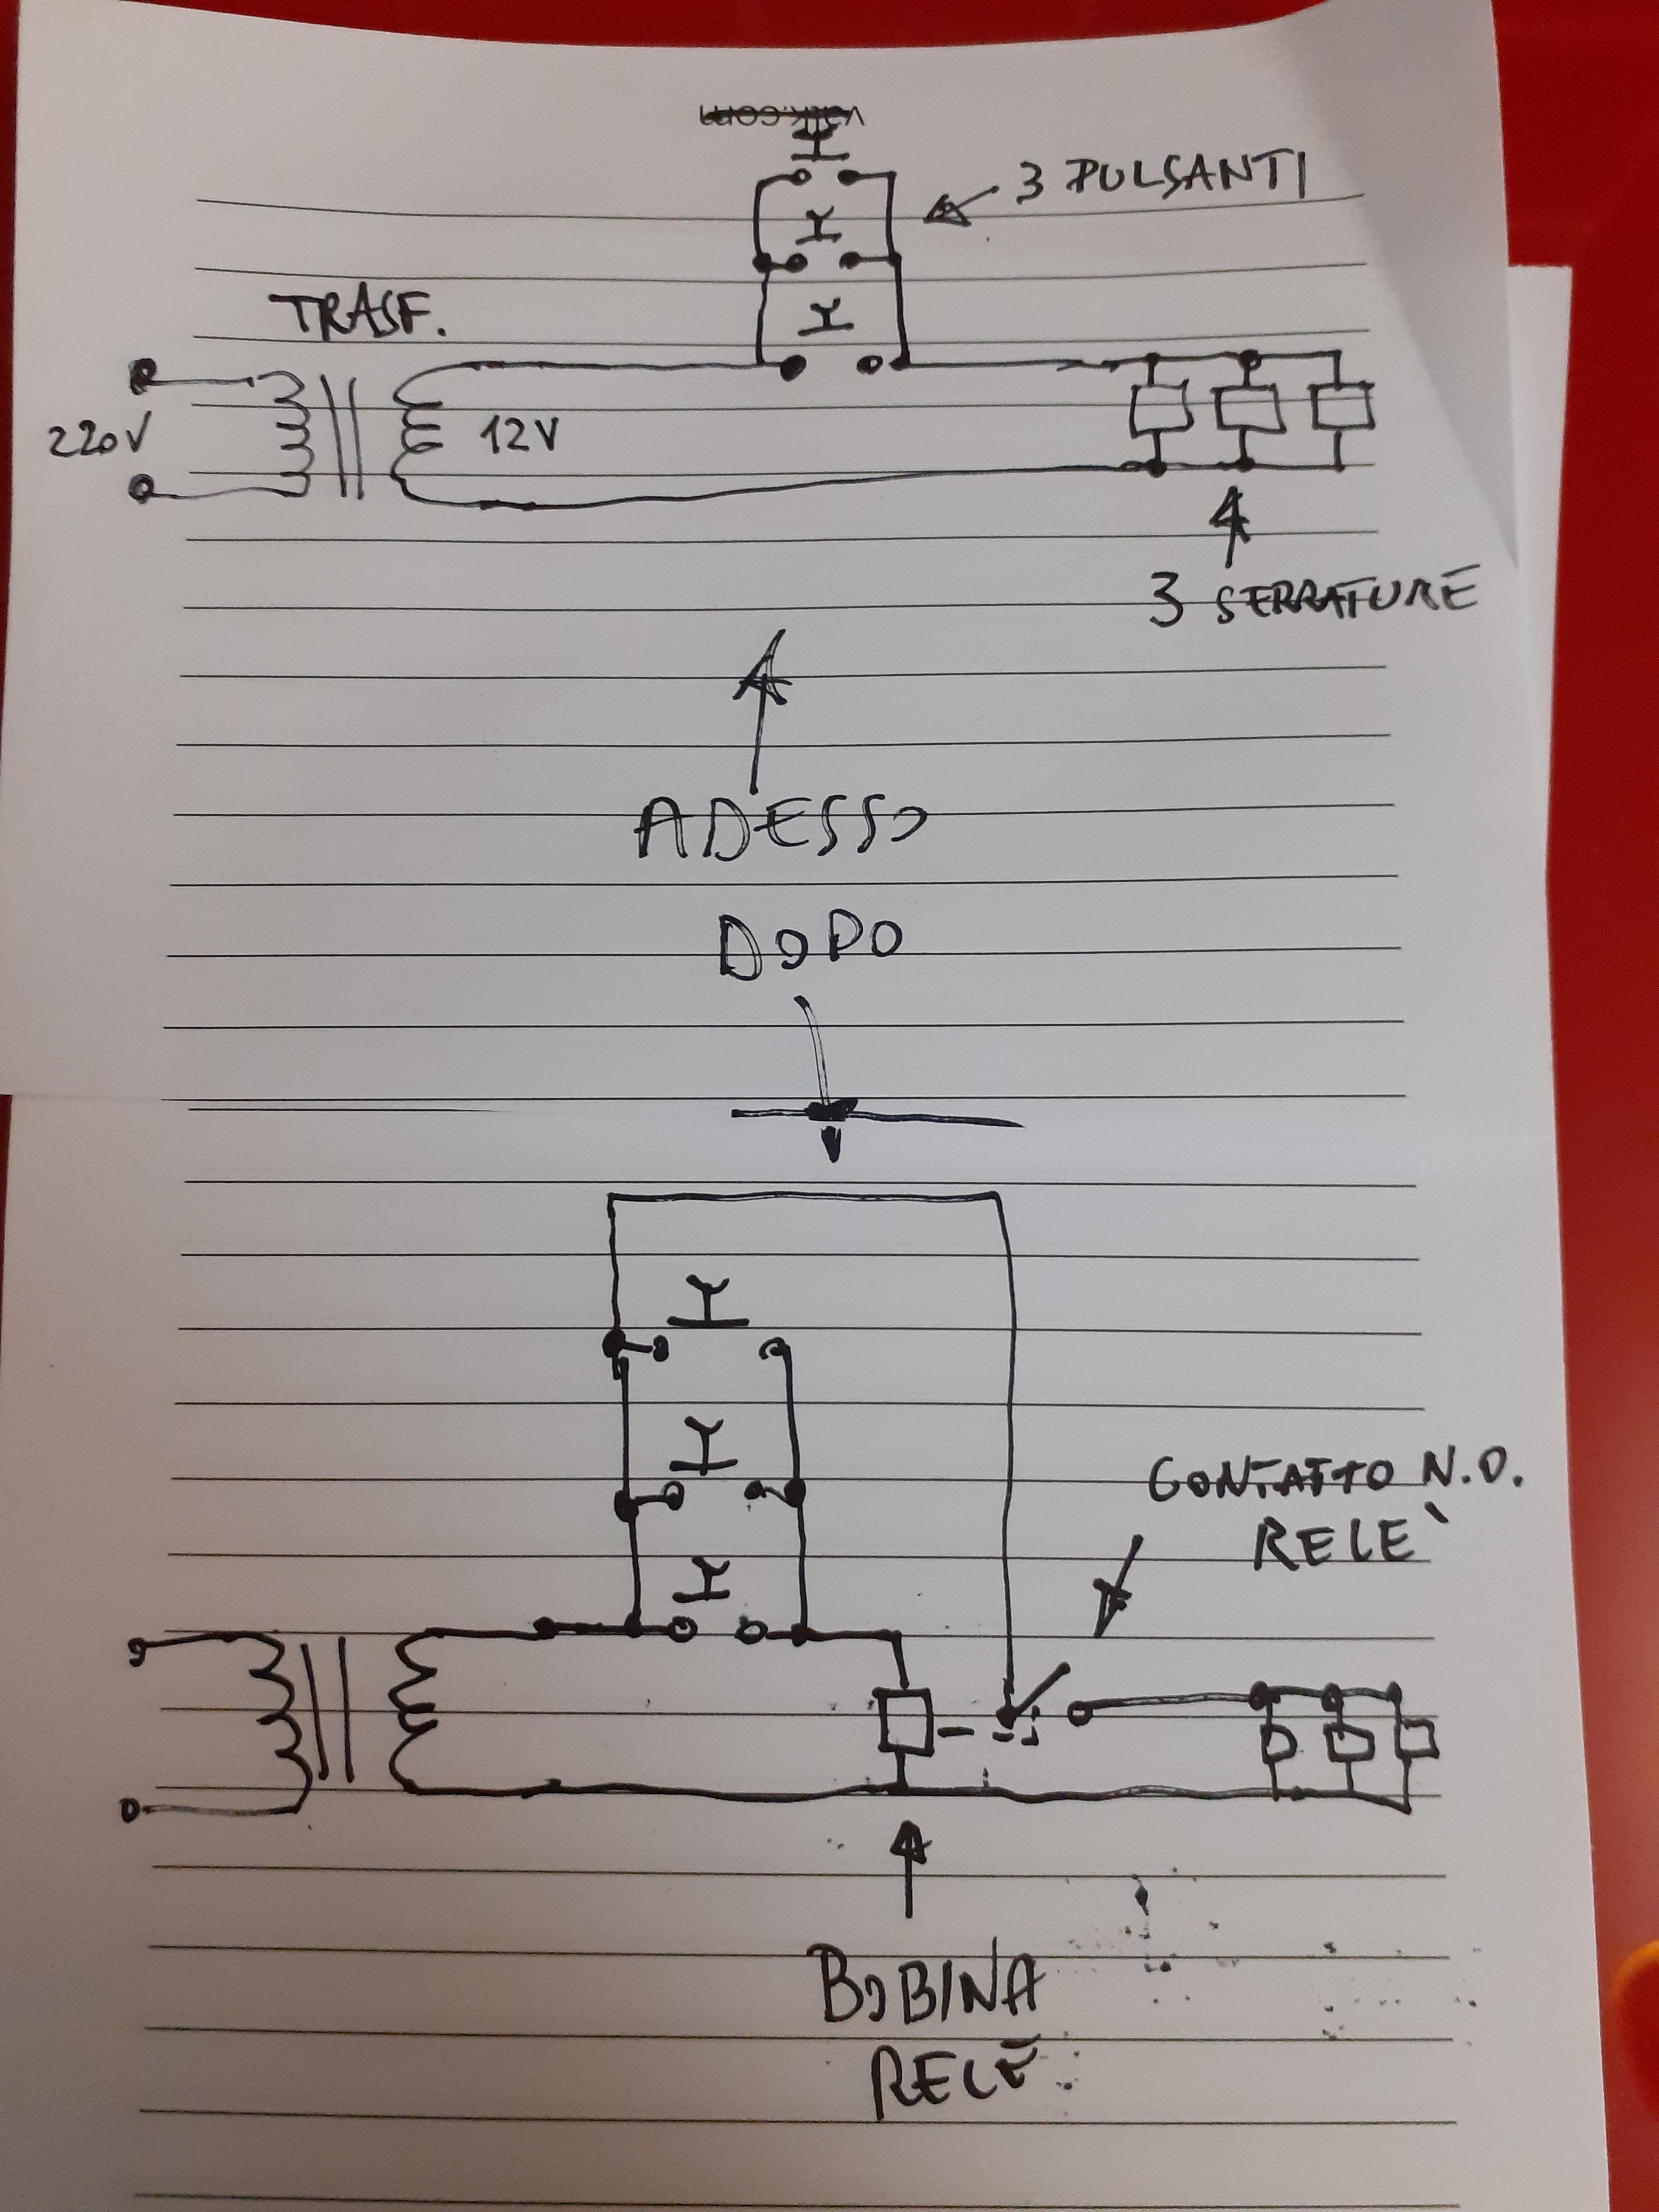 3 PULSANTI
TRASF.
220V
12V
3 SERRATURE
ADESSO
DOPO
CONTATTO N.O.
RELE`
BOBINA
RELE